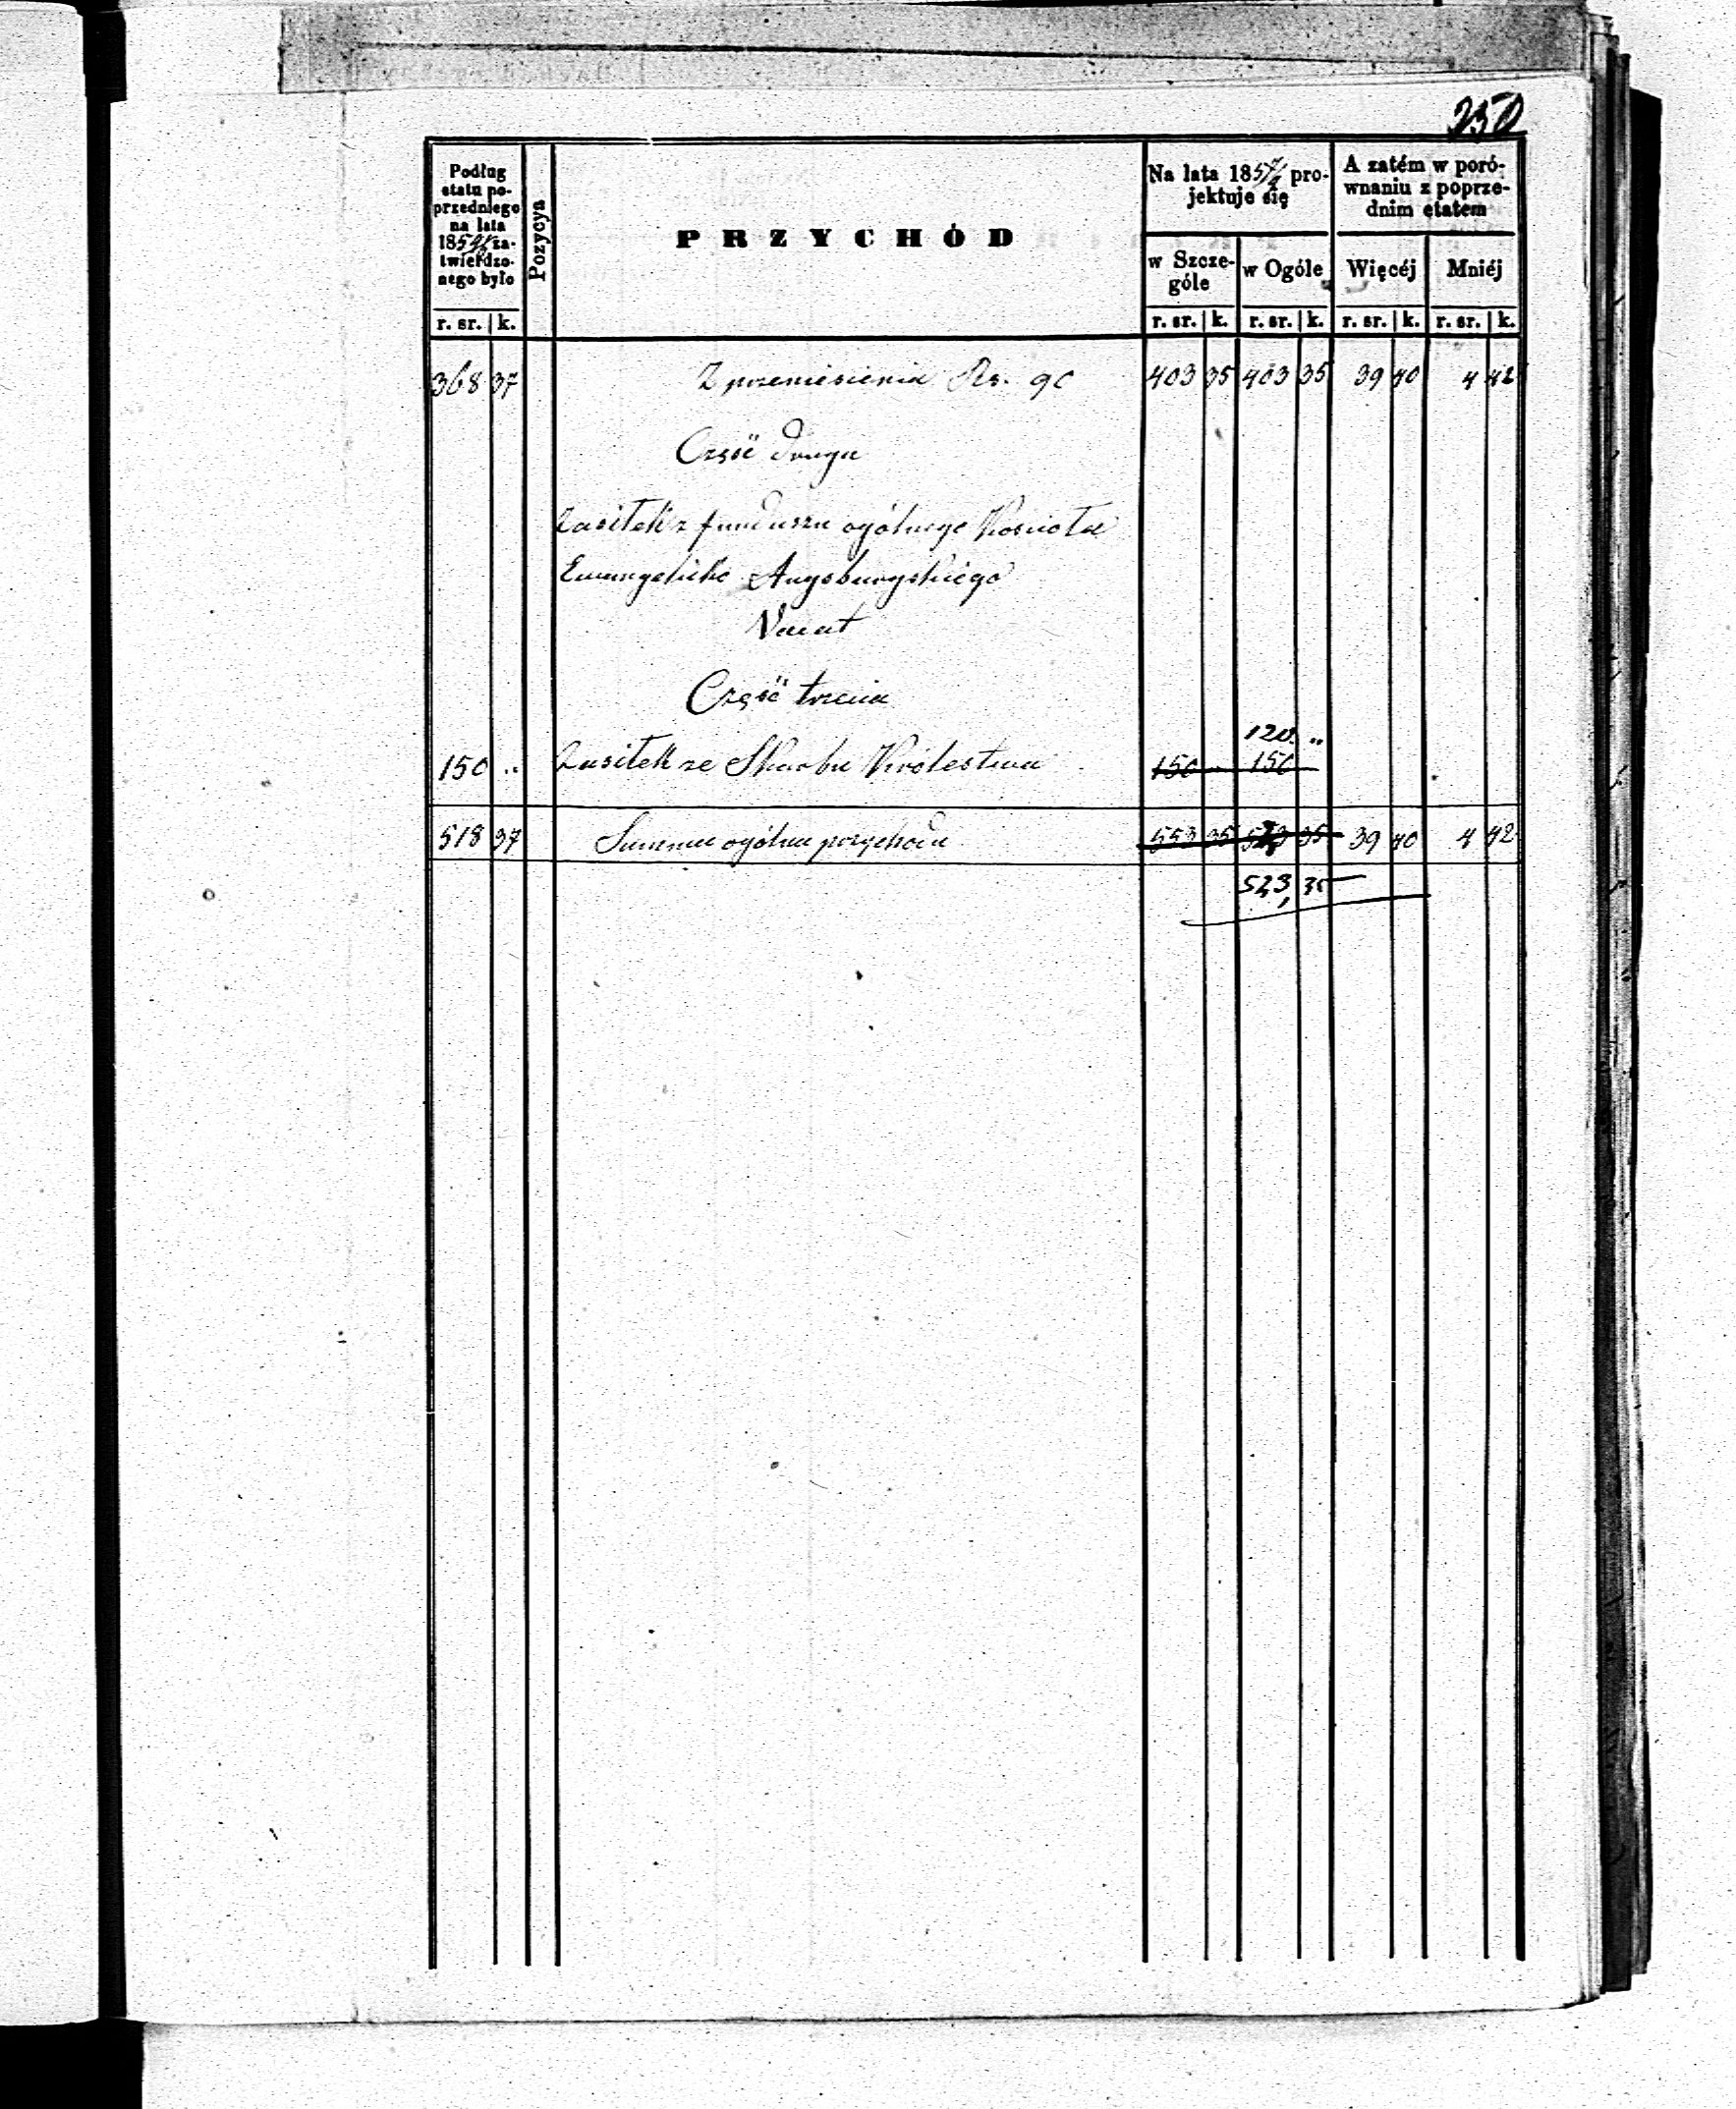 250
Podług
etatu po-
przedniego
na lata
1854/6 za-
twierdzo-
nego było
Pozycya
PRZYCHÓD
Na lata 1857/9 pro-
jektuje się
A zatém w poró-
wnaniu z poprze-
dnim etatem
w Szcze-
góle
w Ogóle
Więcéj
Mniéj
r. sr. k. r. sr. k. r. sr. k. r. sr. k. r. sr. k.
368 37 Z przeniesienia Rs. 403 35 403 35 39 40 4 42
Część druga
Zasiłek z funduszu ogólnego Kościoła
Ewangelicko Augsburgskiego
Vacat
Część trzecia
120 "
150 " Zasiłek ze Skarbu Królestwa 150 " 150
518 37 Summa ogólna przychodu 553 35 35 39 40 4 42
523 35